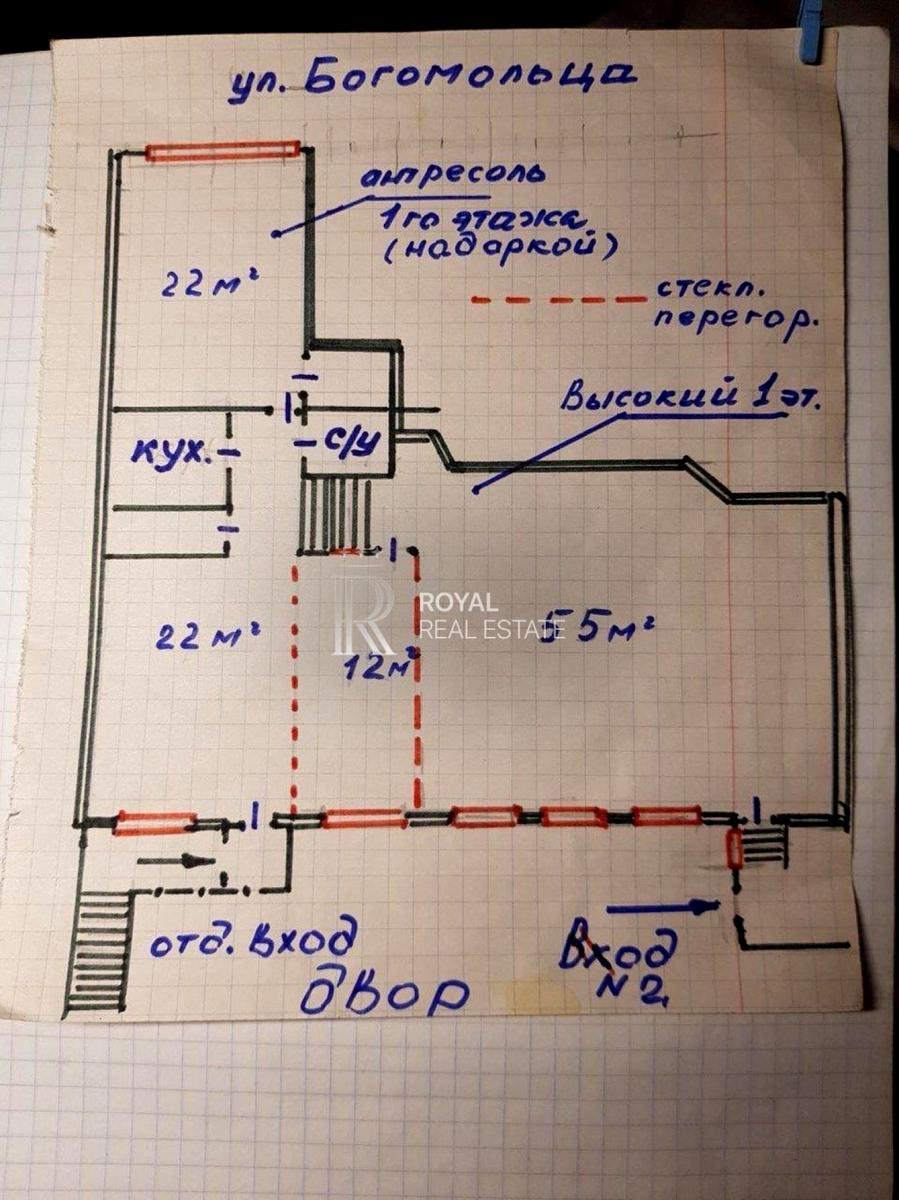 ул. Богомольца
антресоль
1го этажа
(над аркой)
22 м²
стекл.
перегор.
Высокий 1 эт.
кух.
с/у
ROYAL
REAL ESTATE
22 м²
12 м²
55 м²
отд. вход
двор
Вход
N 2.